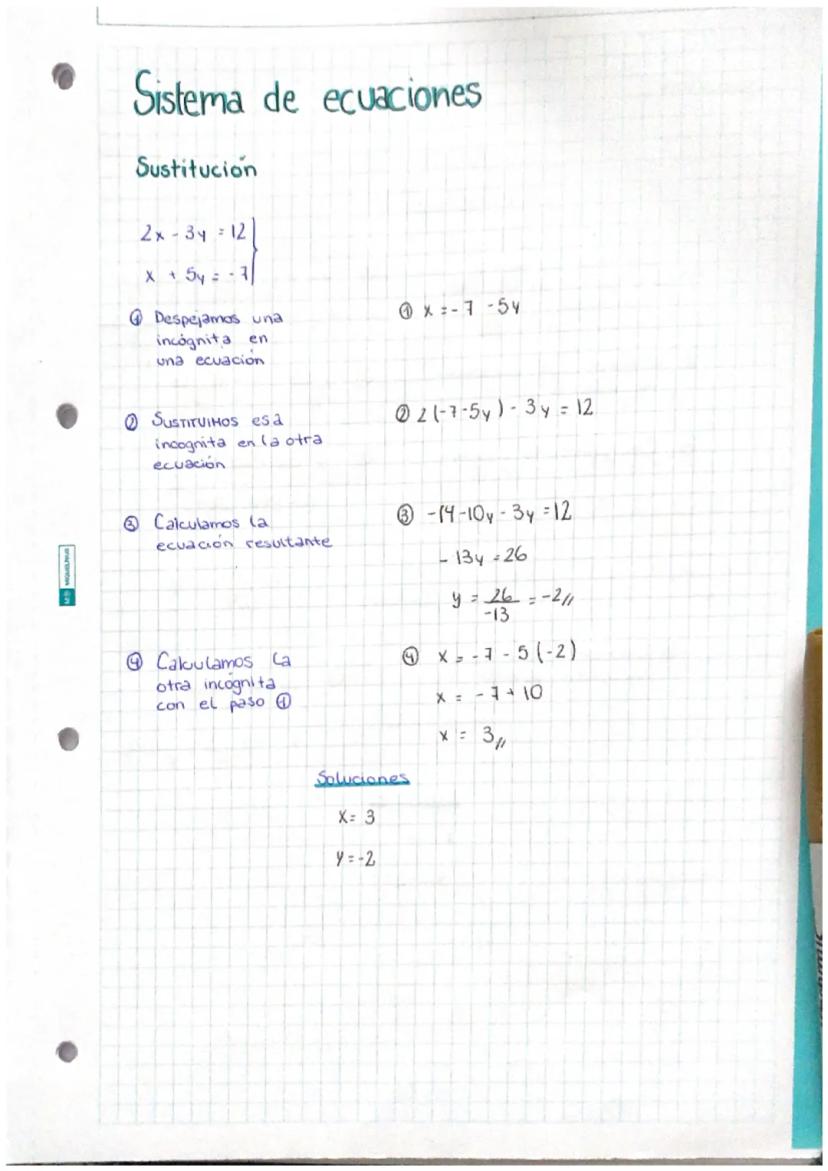 Sistema de ecuaciones
Sustitución
2x - 3y = 12
x + 5y = -7
① Despejamos una
incógnita en
una ecuación
① x = -7 -5y
② SUSTITUIMOS esa
incognita en la otra
ecuación
② 2(-7-5y) - 3y = 12
③ Calculamos la
ecuación resultante
③ -14-10y - 3y = 12
- 13y = 26
y = 26/-13 = -2//
④ Calculamos la
otra incógnita
con el paso ①
④ x = -7 - 5(-2)
x = -7 + 10
x = 3//
Soluciones
X= 3
y = -2
MIQUELRIUS